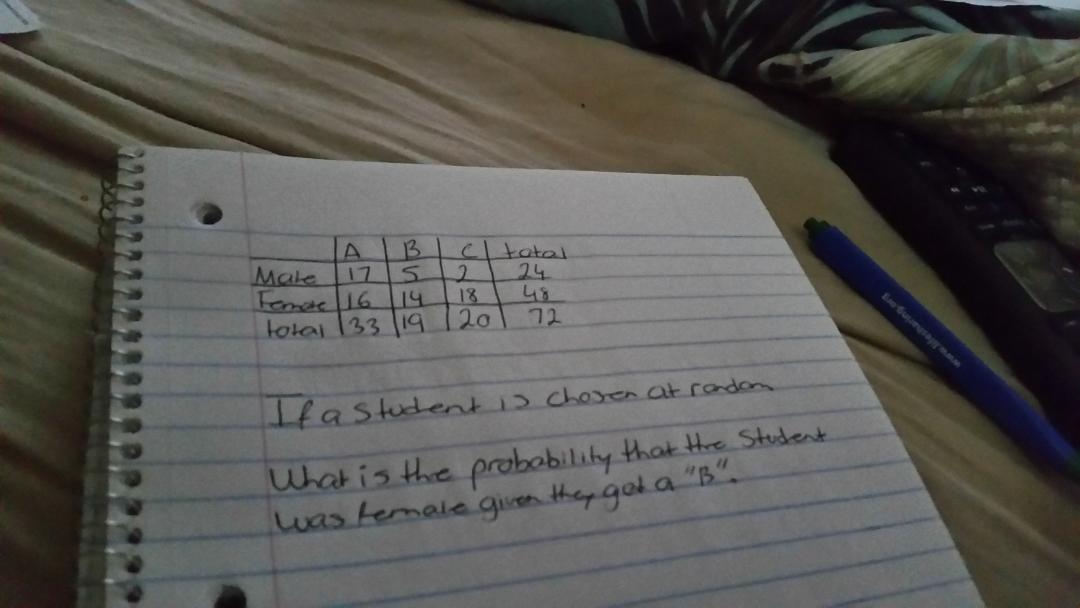 A B C total
Male 17 5 2 24
Female 16 14 18 48
total 33 19 20 72
If a student is chosen at random
What is the probability that the student
was female given they got a "B".
www.lifesharing.org